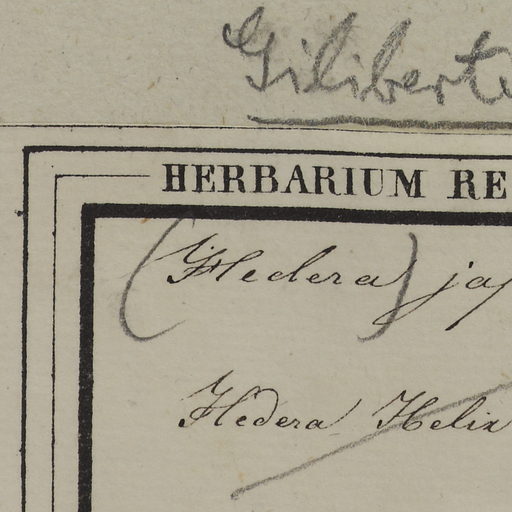 Giliberte
HERBARIUM RE
(Hedera) jap
Hedera Helix